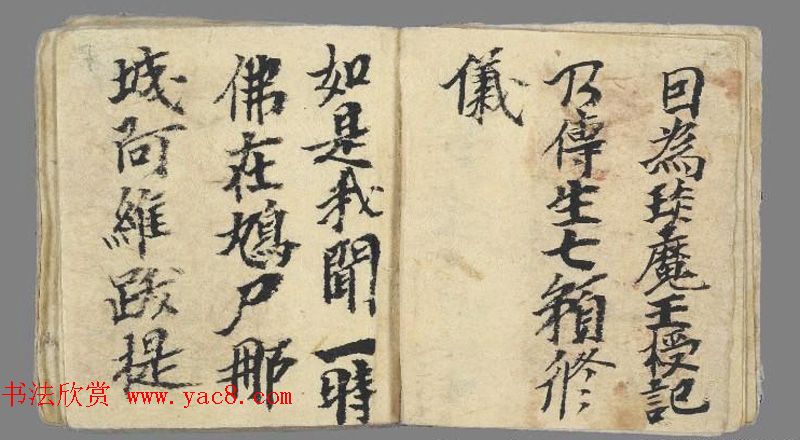 因為琰魔王授記
乃傳生七修
儀
如是我聞一時
佛在鳩尸那
城阿維跋提
书法欣赏 www.yac8.com